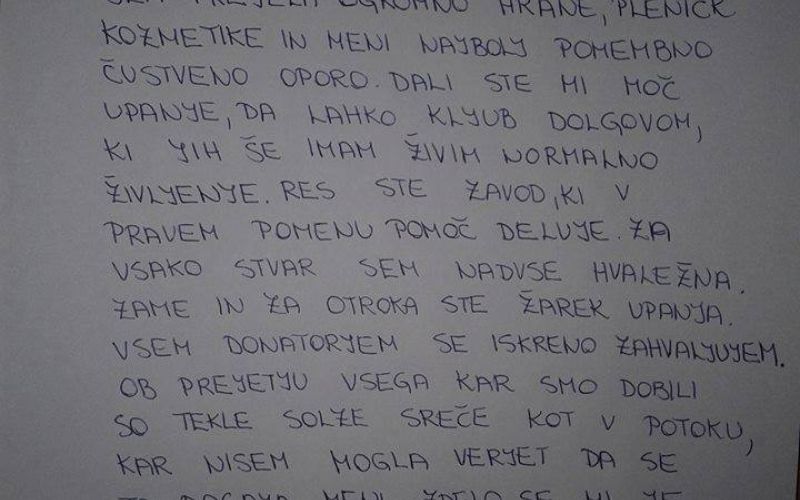 SEM PREJELA OGROMNO HRANE, PLENICK
KOZMETIKE IN MENI NAJBOLJ POMEMBNO
ČUSTVENO OPORO. DALI STE MI MOČ
UPANJE, DA LAHKO KLJUB DOLGOVOM,
KI JIH ŠE IMAM ŽIVIM NORMALNO
ŽIVLJENJE. RES STE ZAVOD, KI V
PRAVEM POMENU POMOČ DELUJE. ZA
VSAKO STVAR SEM NADVSE HVALEŽNA.
ZAME IN ZA OTROKA STE ŽAREK UPANJA.
VSEM DONATORJEM SE ISKRENO ZAHVALJUJEM.
OB PREJETJU VSEGA KAR SMO DOBILI
SO TEKLE SOLZE SREČE KOT V POTOKU,
KAR NISEM MOGLA VERJET DA SE
MENI SE NI